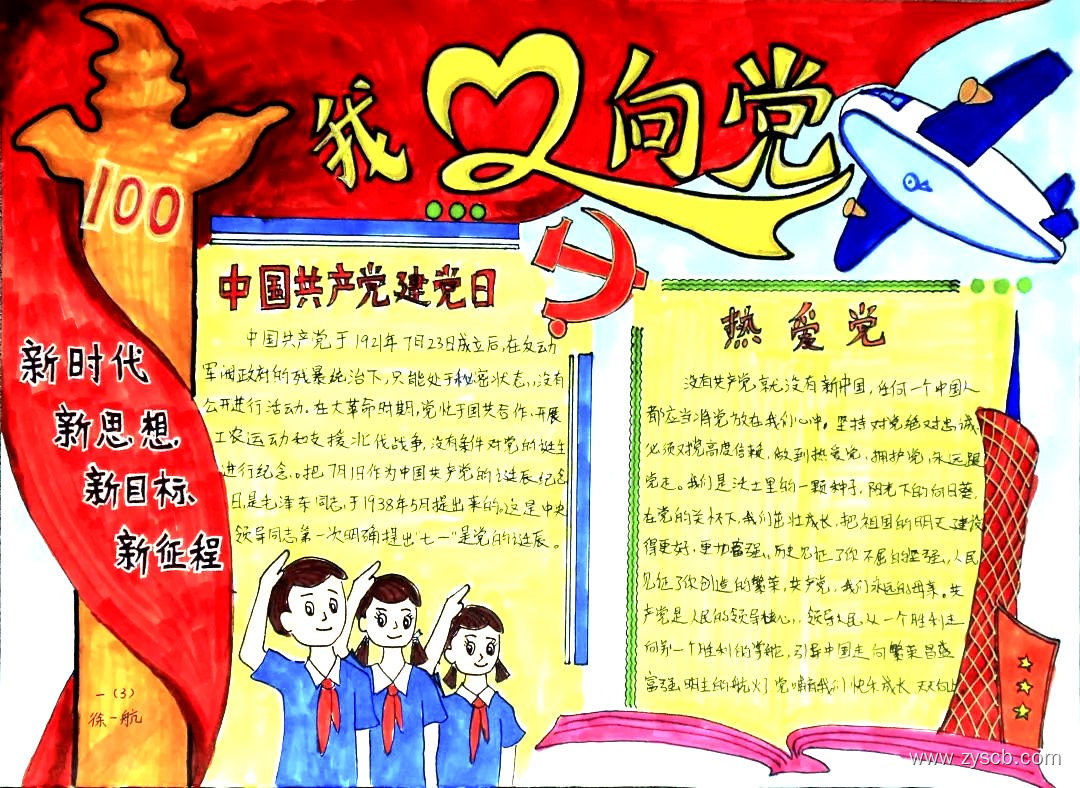 我向党
100
中国共产党建党日
中国共产党于1921年7月23日成立后,在反动
军阀政府的残暴统治下,只能处于秘密状态,没有
公开进行活动。在大革命时期,党忙于国共合作、开展
工农运动和支援北伐战争,没有条件对党的诞生
进行纪念。把7月1日作为中国共产党的诞辰纪念
日,是毛泽东同志,于1938年5月提出来的。这是中央
领导同志第一次明确提出"七一"是党的诞辰。
热爱党
没有共产党就没有新中国,任何一个中国人
都应当将党放在我们心中。坚持对党绝对忠诚,
必须对党高度信赖,做到热爱党,拥护党,永远跟
党走。我们是沃土里的一颗种子,阳光下的向日葵,
在党的关怀下,我们茁壮成长,把祖国的明天建设
得更好,更加富强。历史见证了你不屈的坚强,人民
见证了你创造的繁荣,共产党,我们永远的母亲。共
产党是人民的领导核心,领导人民从一个胜利走
向另一个胜利的掌舵,引导中国走向繁荣昌盛
富强明主的航火丁党哺育我们快乐成长 天天向上
新时代
新思想
新目标
新征程
一(3)
徐一航
www.zyscb.com